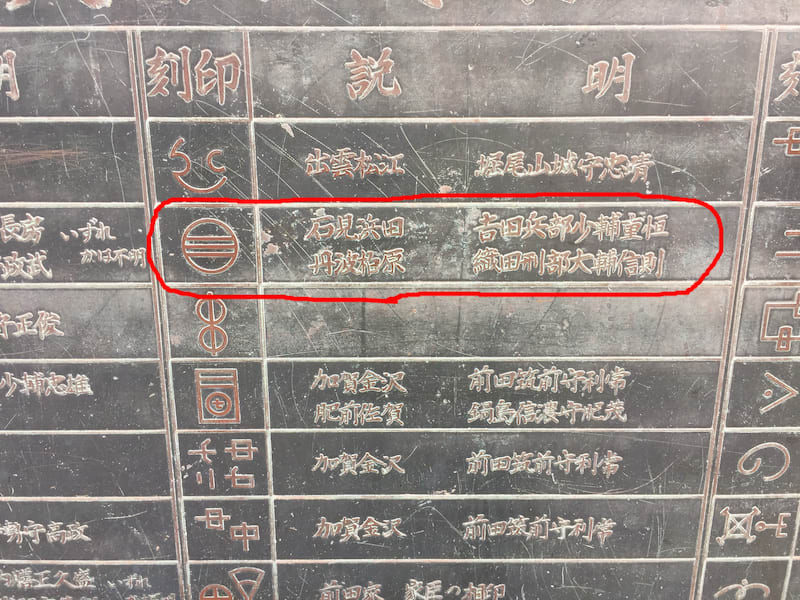 明 刻印 説明 刻
出雲松江 堀尾山城守忠晴
長房 いずれ
政武 かは不明
石見浜田 吉田兵部少輔重恒
丹波柏原 織田刑部大輔信則
守正俊
少輔忠雄
加賀金沢 前田筑前守利常
肥前佐賀 鍋島信濃守勝茂
加賀金沢 前田筑前守利常
勢守高政
加賀金沢 前田筑前守利常
いずれ
前田家 家臣の相印